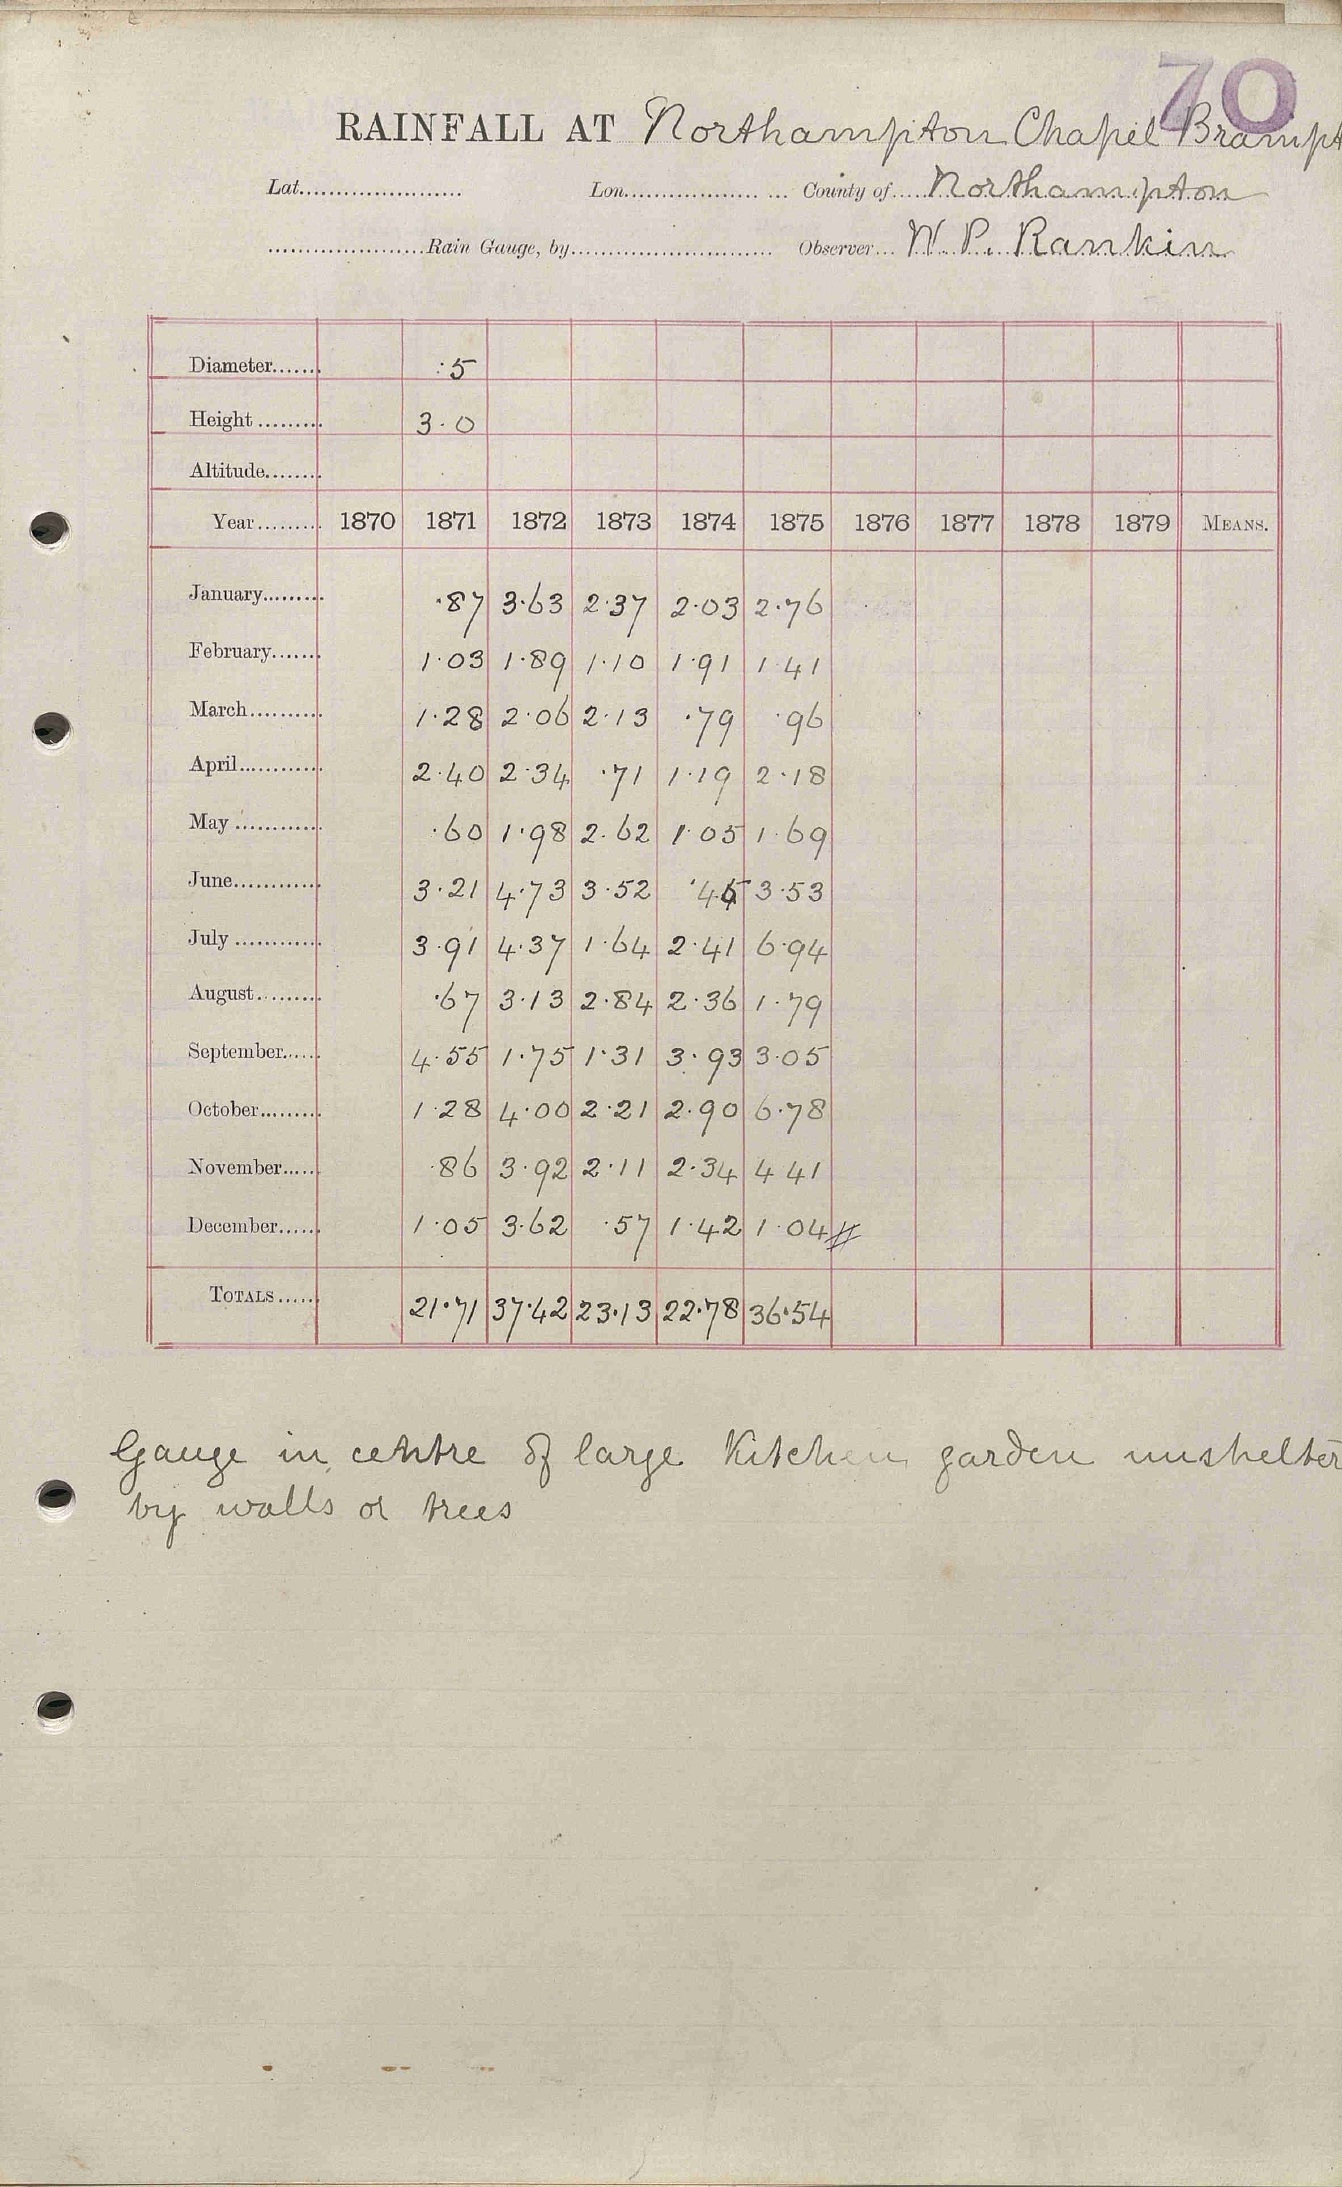 70
RAINFALL AT Northampton Chapel Brampt
Lat...................... Lon...................... County of..... Northampton
......................Rain Gauge, by............................ Observer... W. P. Rankin
Diameter....... ·5
Height ......... 3·0
Altitude........
Year......... 1870 1871 1872 1873 1874 1875 1876 1877 1878 1879 MEANS.
January......... ·87 3·63 2·37 2·03 2·76
February....... 1·03 1·89 1·10 1·91 1·41
March.......... 1·28 2·06 2·13 ·79 ·96
April............ 2·40 2·34 ·71 1·19 2·18
May ............ ·60 1·98 2·62 1·05 1·69
June............ 3·21 4·73 3·52 ·45 3·53
July ............ 3·91 4·37 1·64 2·41 6·94
August......... ·67 3·13 2·84 2·36 1·79
September...... 4·55 1·75 1·31 3·93 3·05
October......... 1·28 4·00 2·21 2·90 6·78
November...... ·86 3·92 2·11 2·34 4 41
December...... 1·05 3·62 ·57 1·42 1·04
TOTALS...... 21·71 37·42 23·13 22·78 36·54
Gauge in centre of large Kitchen garden unshelter
by walls or trees